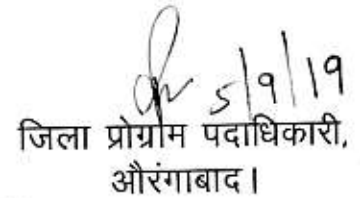 5/9/19
जिला प्रोग्राम पदाधिकारी,
औरंगाबाद।